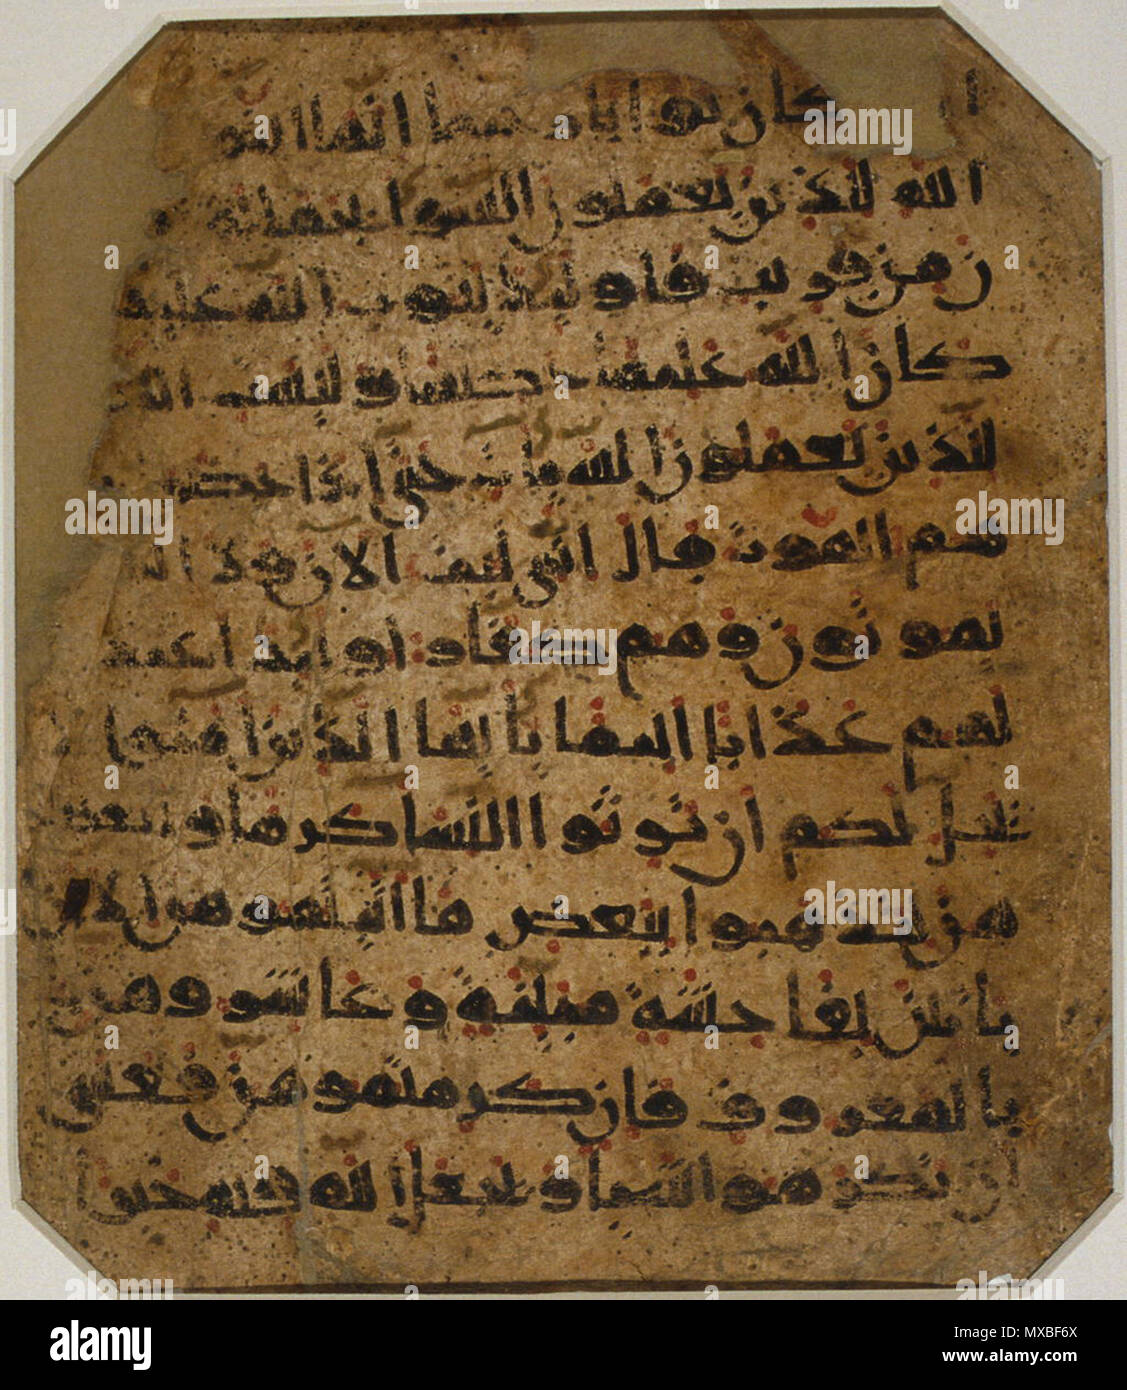 كان توابا رحيما انما التو
الله للذين يعملون السوا بجهلة
ن من قريب فاولئك يتوب الله عليهم
كان الله عليما حكيما وليست التو
للذين يعملون السيات حتى اذا حضر
هم الموت قال اني تبت الان ولا الذ
يموتون وهم كفار اولئك اعتدنا
لهم عذابا اليما يايها الذين امنوا
يحل لكم ان ترثوا النسا كرها ولا تعضلو
هن لتذهبوا ببعض ما اتيتموهن الا ان
ياتين بفحشة مبينة وعاشروهن
بالمعروف فان كرهتموهن فعسى
ان تكرهوا شيا ويجعل الله فيه خيرا
alamy
Image ID: MXBF6X
www.alamy.com